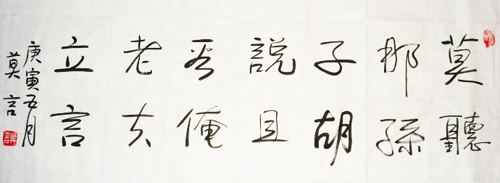 莫聽
那孫
子胡
說且
看俺
老夫
立言
庚寅五月
莫言